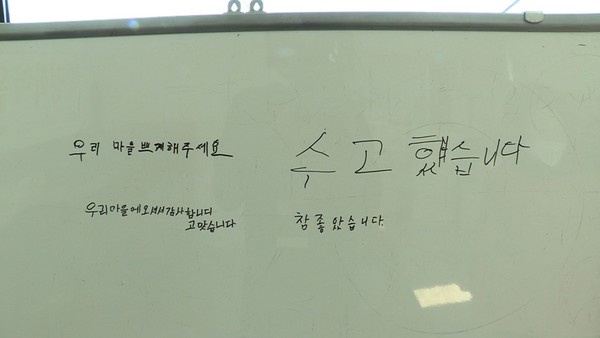 우리 마을쁘게해주세요
수고 했습니다
우리마을에오셔서감사합니다
고맛습니다
참좋았습니다